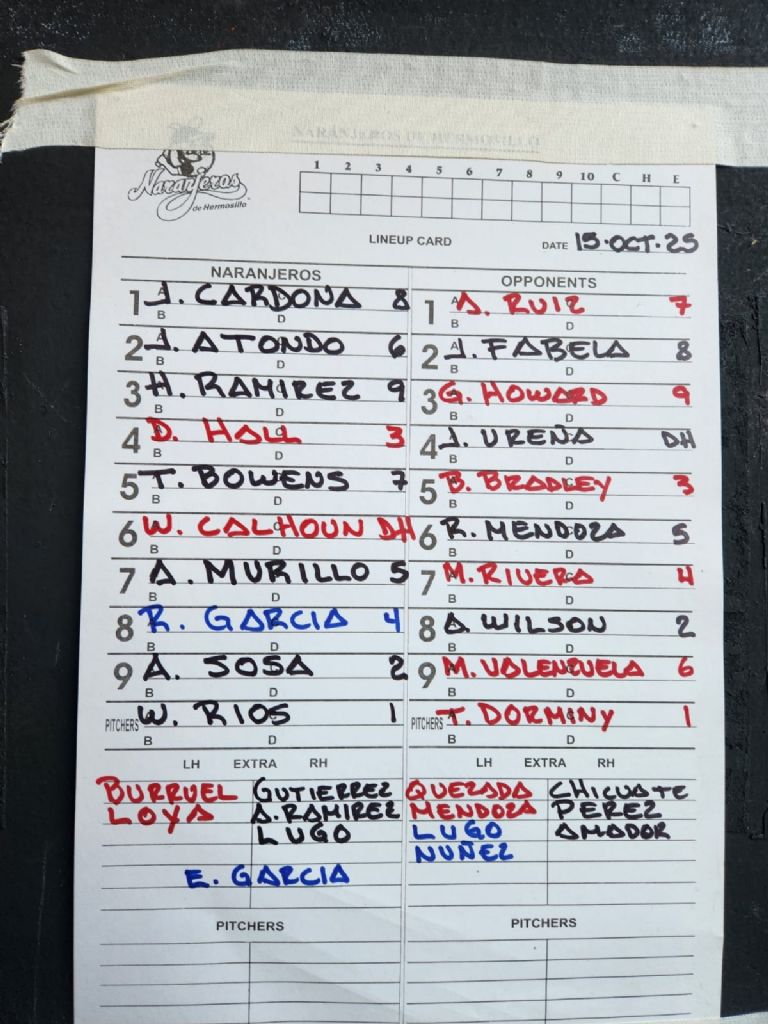 NARANJEROS DE HERMOSILLO
Naranjeros
de Hermosillo
1 2 3 4 5 6 7 8 9 10 C H E
LINEUP CARD
DATE 15·OCT·25
NARANJEROS
1 J. CARDONA 8
2 J. ATONDO 6
3 H. RAMIREZ 9
4 D. HALL 3
5 T. BOWENS 7
6 W. CALHOUN DH
7 A. MURILLO 5
8 R. GARCIA 4
9 A. SOSA 2
PITCHERS W. RIOS 1
B D
LH EXTRA RH
BURRUEL GUTIERREZ
LOYA A. RAMIREZ
LUGO
E. GARCIA
PITCHERS
OPPONENTS
1 A. RUIZ 7
2 J. FABELA 8
3 G. HOWARD 9
4 J. UREÑA DH
5 B. BRADLEY 3
6 R. MENDOZA 5
7 M. RIVERA 4
8 A WILSON 2
9 M. VALENZUELA 6
PITCHERS T. DORMINY 1
B D
LH EXTRA RH
QUEZADA CHICUATE
MENDOZA PEREZ
LUGO AMADOR
NUÑEZ
PITCHERS